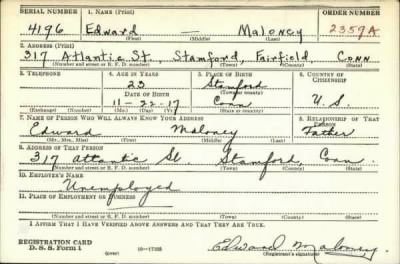 SERIAL NUMBER 1. NAME (Print) ORDER NUMBER
4196 Edward — Maloney 2359A
(First) (Middle) (Last)
2. ADDRESS (Print)
317 Atlantic St., Stamford, Fairfield Conn
(Number and street or R. F. D. number) (Town) (County) (State)
3. TELEPHONE 4. AGE IN YEARS 5. PLACE OF BIRTH 6. COUNTRY OF CITIZENSHIP
23 Stamford
DATE OF BIRTH (Town or county)
11-22-17 Conn U.S.
(Exchange) (Number) (Mo.) (Day) (Yr.) (State or country)
7. NAME OF PERSON WHO WILL ALWAYS KNOW YOUR ADDRESS 8. RELATIONSHIP OF THAT PERSON
Edward Maloney Father
(Mr., Mrs., Miss) (First) (Middle) (Last)
9. ADDRESS OF THAT PERSON
317 Atlantic St. Stamford, Conn.
(Number and street or R. F. D. number) (Town) (County) (State)
10. EMPLOYER'S NAME
Unemployed
11. PLACE OF EMPLOYMENT OR BUSINESS
(Number and street or R. F. D. number) (Town) (County) (State)
I AFFIRM THAT I HAVE VERIFIED ABOVE ANSWERS AND THAT THEY ARE TRUE.
REGISTRATION CARD
D. S. S. Form 1 (over) 16—17105 Edward Maloney
(Registrant's signature)